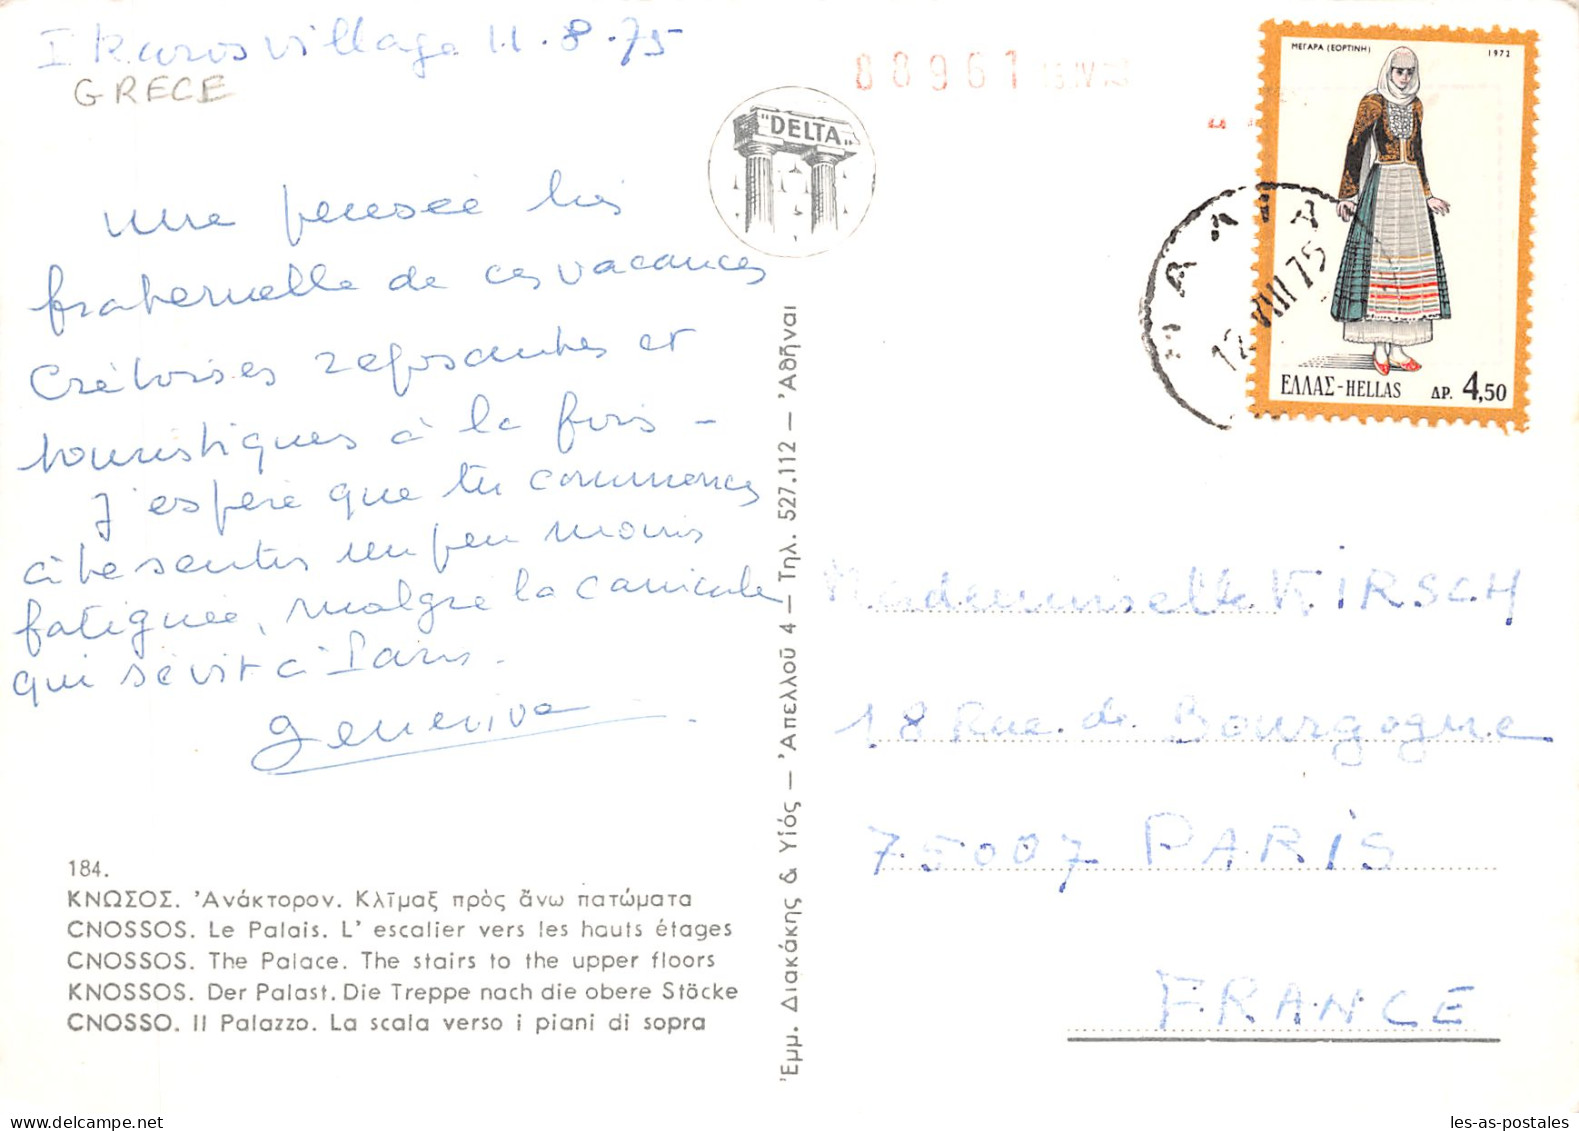 Ikaros village 11.8.75
GRECE
une pensée très
fraternelle de ces vacances
Crétoises reposantes et
touristiques à la fois -
J'espère que tu commences
à te sentir un peu moins
fatiguée, malgré la canicule
qui sévit à Paris.
Geneviève
184.
ΚΝΩΣΟΣ. Ἀνάκτορον. Κλῖμαξ πρὸς ἄνω πατώματα
CNOSSOS. Le Palais. L' escalier vers les hauts étages
CNOSSOS. The Palace. The stairs to the upper floors
KNOSSOS. Der Palast. Die Treppe nach die obere Stöcke
CNOSSO. Il Palazzo. La scala verso i piani di sopra
"DELTA"
Ἐμμ. Διακάκης & Υἱός — Ἀπελλοῦ 4 — Τηλ. 527.112 — Ἀθῆναι
88961
ΜΕΓΑΡΑ (ΕΟΡΤΙΝΗ) 1972
ΕΛΛΑΣ-HELLAS ΔΡ. 4,50
12 VIII 75
Mademoiselle KIRSCH
18 Rue de Bourgogne
75007 PARIS
FRANCE
les-as-postales